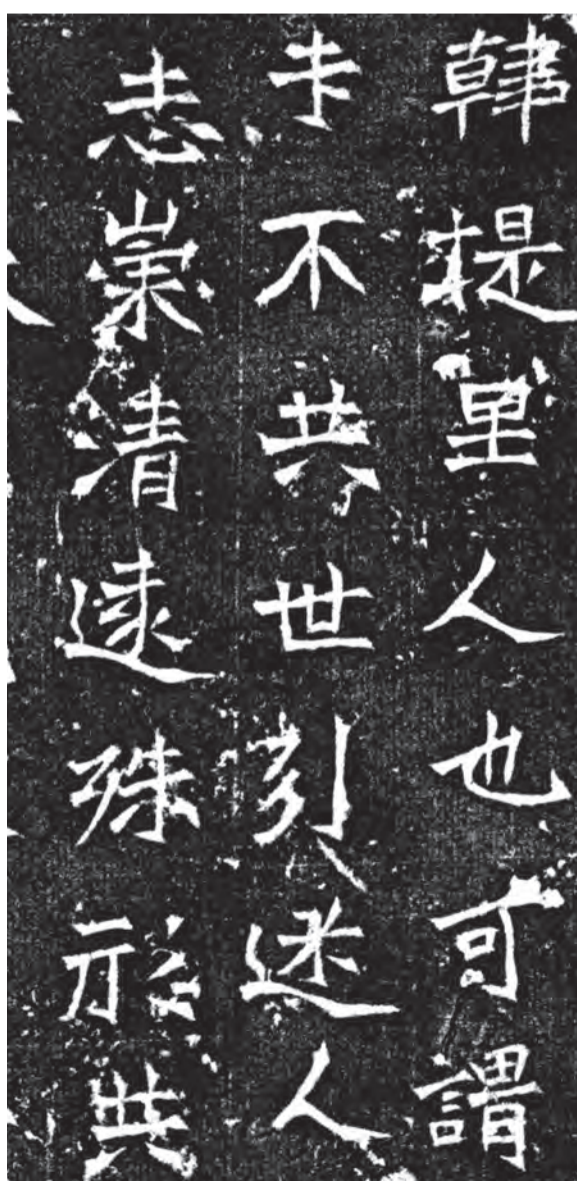 韓提里人也可謂
才不共世引迷人
志崇清遠殊於共